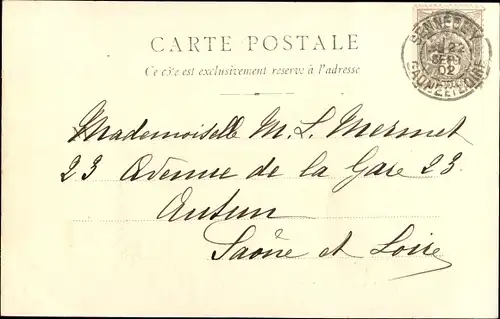 CARTE POSTALE
Ce côté est exclusivement réservé à l'adresse
SENNECEY
22
SEPT
02
SAONE-ET-LOIRE
Mademoiselle M. L. Mermet
23 Avenue de la Gare 23
Autun
Saône et Loire